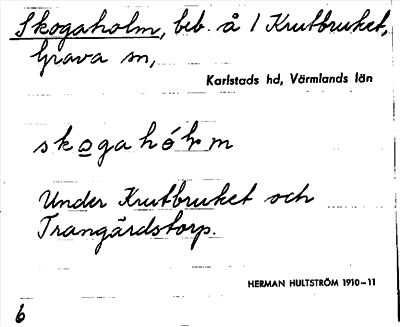 Skogaholm, beb. å 1 Krutbruket,
Grava sn,
Karlstads hd, Värmlands län
skogahólm
Under Krutbruket och
Trangärdstorp.
HERMAN HULTSTRÖM 1910–11
6